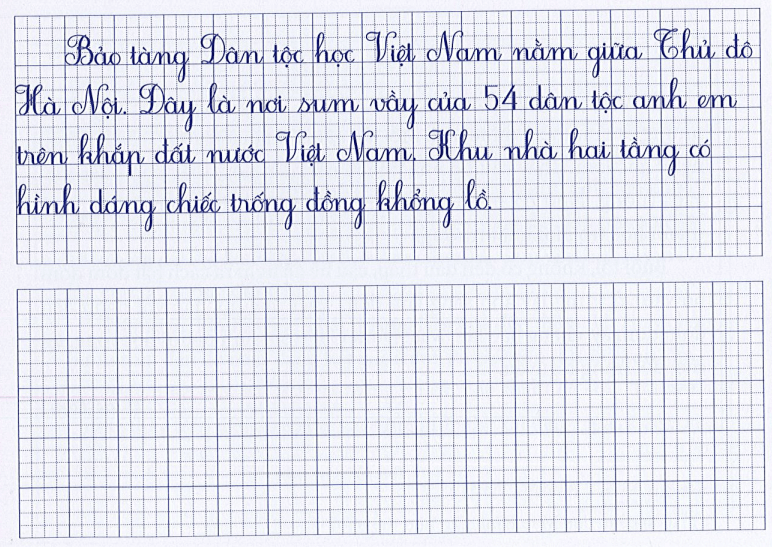 Bảo tàng Dân tộc học Việt Nam nằm giữa Thủ đô
Hà Nội. Đây là nơi sum vầy của 54 dân tộc anh em
trên khắp đất nước Việt Nam. Khu nhà hai tầng có
hình dáng chiếc trống đồng khổng lồ.